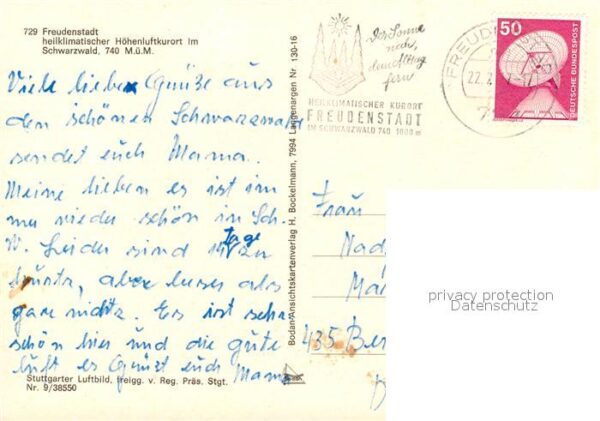 729 Freudenstadt
heilklimatischer Höhenluftkurort im
Schwarzwald, 740 M.ü.M.
Viele lieben Grüße aus
den schönen Schwarzwald
sendet euch Mama.
Meine lieben es ist im
mer wieder schön in Sch-
W. Leider sind 14 tage zu
kurtz, aber besser als
gare nichtz. Es ist sehr
schön hier und die gute
luft es Grüst euch Mama
Stuttgarter Luftbild, freigg. v. Reg. Präs. Stgt.
Nr. 9/38550
Bodan-Ansichtskartenverlag H. Bockelmann, 7994 Langenargen Nr 130-16
Der Sonne
nach,
fern
HEILKLIMATISCHER KURORT
FREUDENSTADT
IM SCHWARZWALD 740 1000 m
FREUD
22.2
50
DEUTSCHE BUNDESPOST
Frau
Nad
Ma
435 Be
privacy protection
Datenschutz